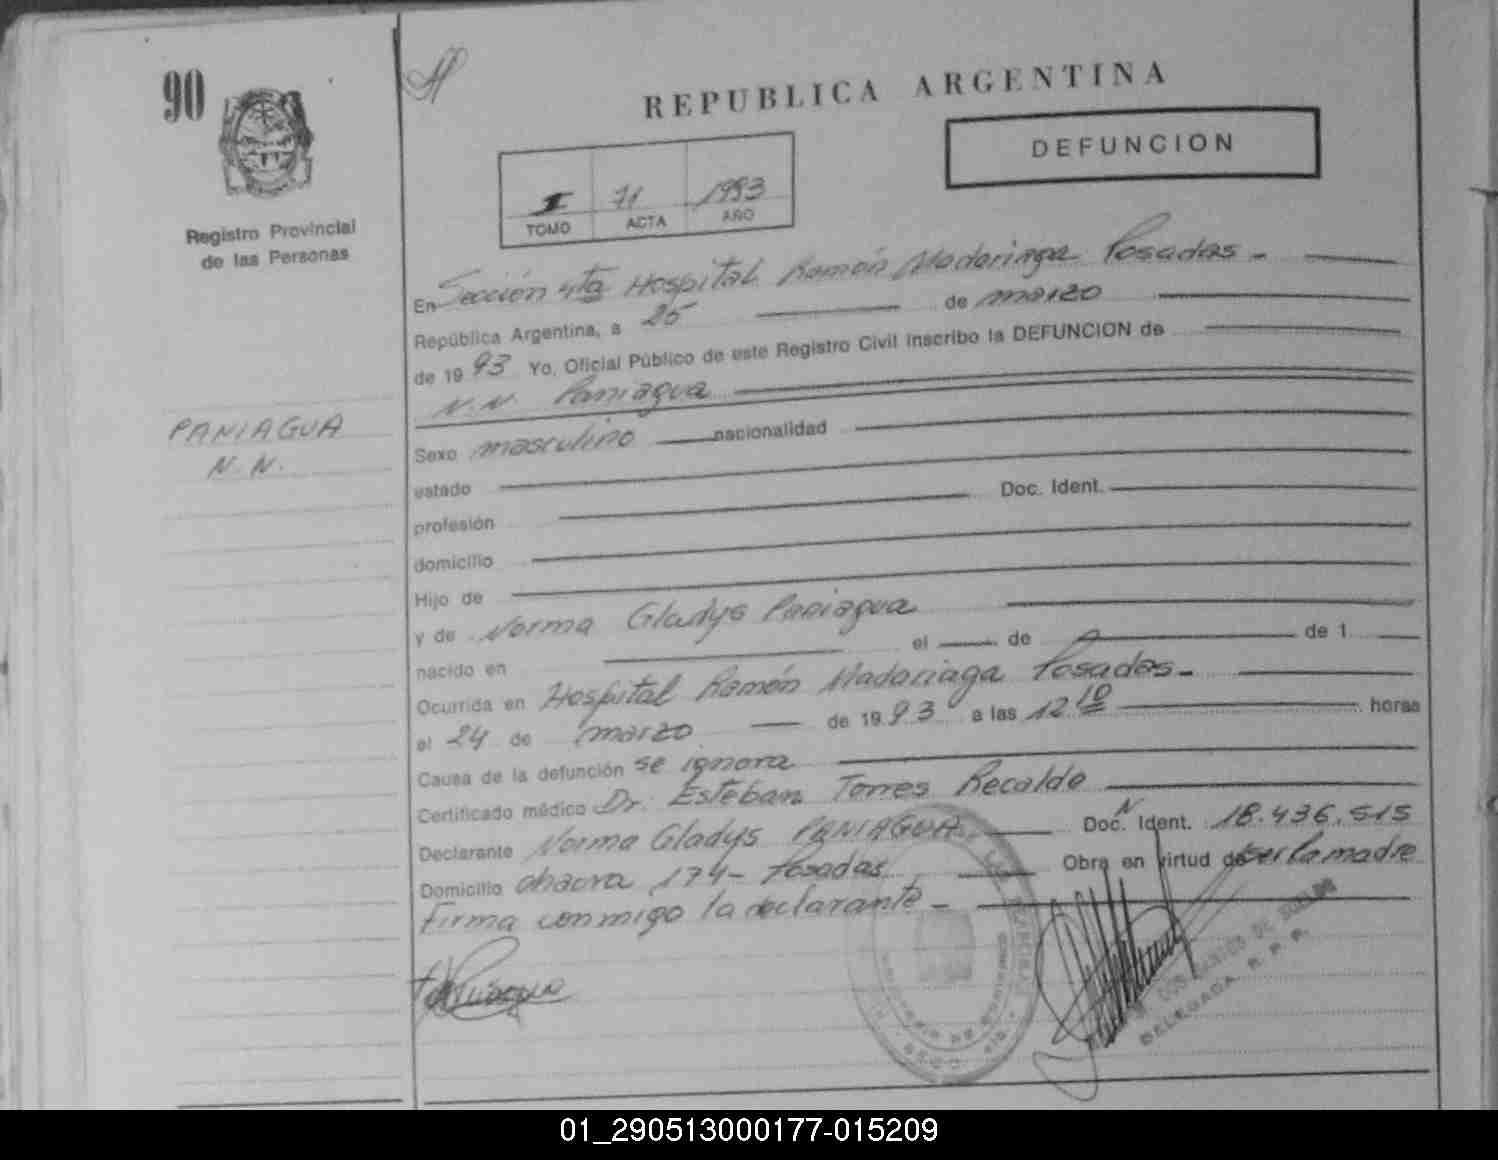 90
REPUBLICA ARGENTINA
DEFUNCION
I 71 1993
TOMO ACTA AÑO
Registro Provincial
de las Personas
En Sección 4ta Hospital Ramón Madariaga Posadas -
República Argentina, a 25 de marzo
de 19 93 Yo, Oficial Público de este Registro Civil inscribo la DEFUNCION de
N.N. Paniagua
PANIAGUA
N. N.
Sexo masculino nacionalidad
estado
profesión Doc. Ident.
domicilio
Hijo de
y de Norma Gladys Paniagua
nacido en el de de 1
Ocurrida en Hospital Ramón Madariaga Posadas -
el 24 de marzo de 19 93 a las 12 10 horas
Causa de la defunción se ignora
Certificado médico Dr. Esteban Torres Recalde
Declarante Norma Gladys PANIAGUA Doc. Ident. N 18.436.515
Domicilio 174 - Posadas Obra en virtud de ser la madre
Firma conmigo la declarante -
DELEGADA R. P. P.
01_290513000177-015209